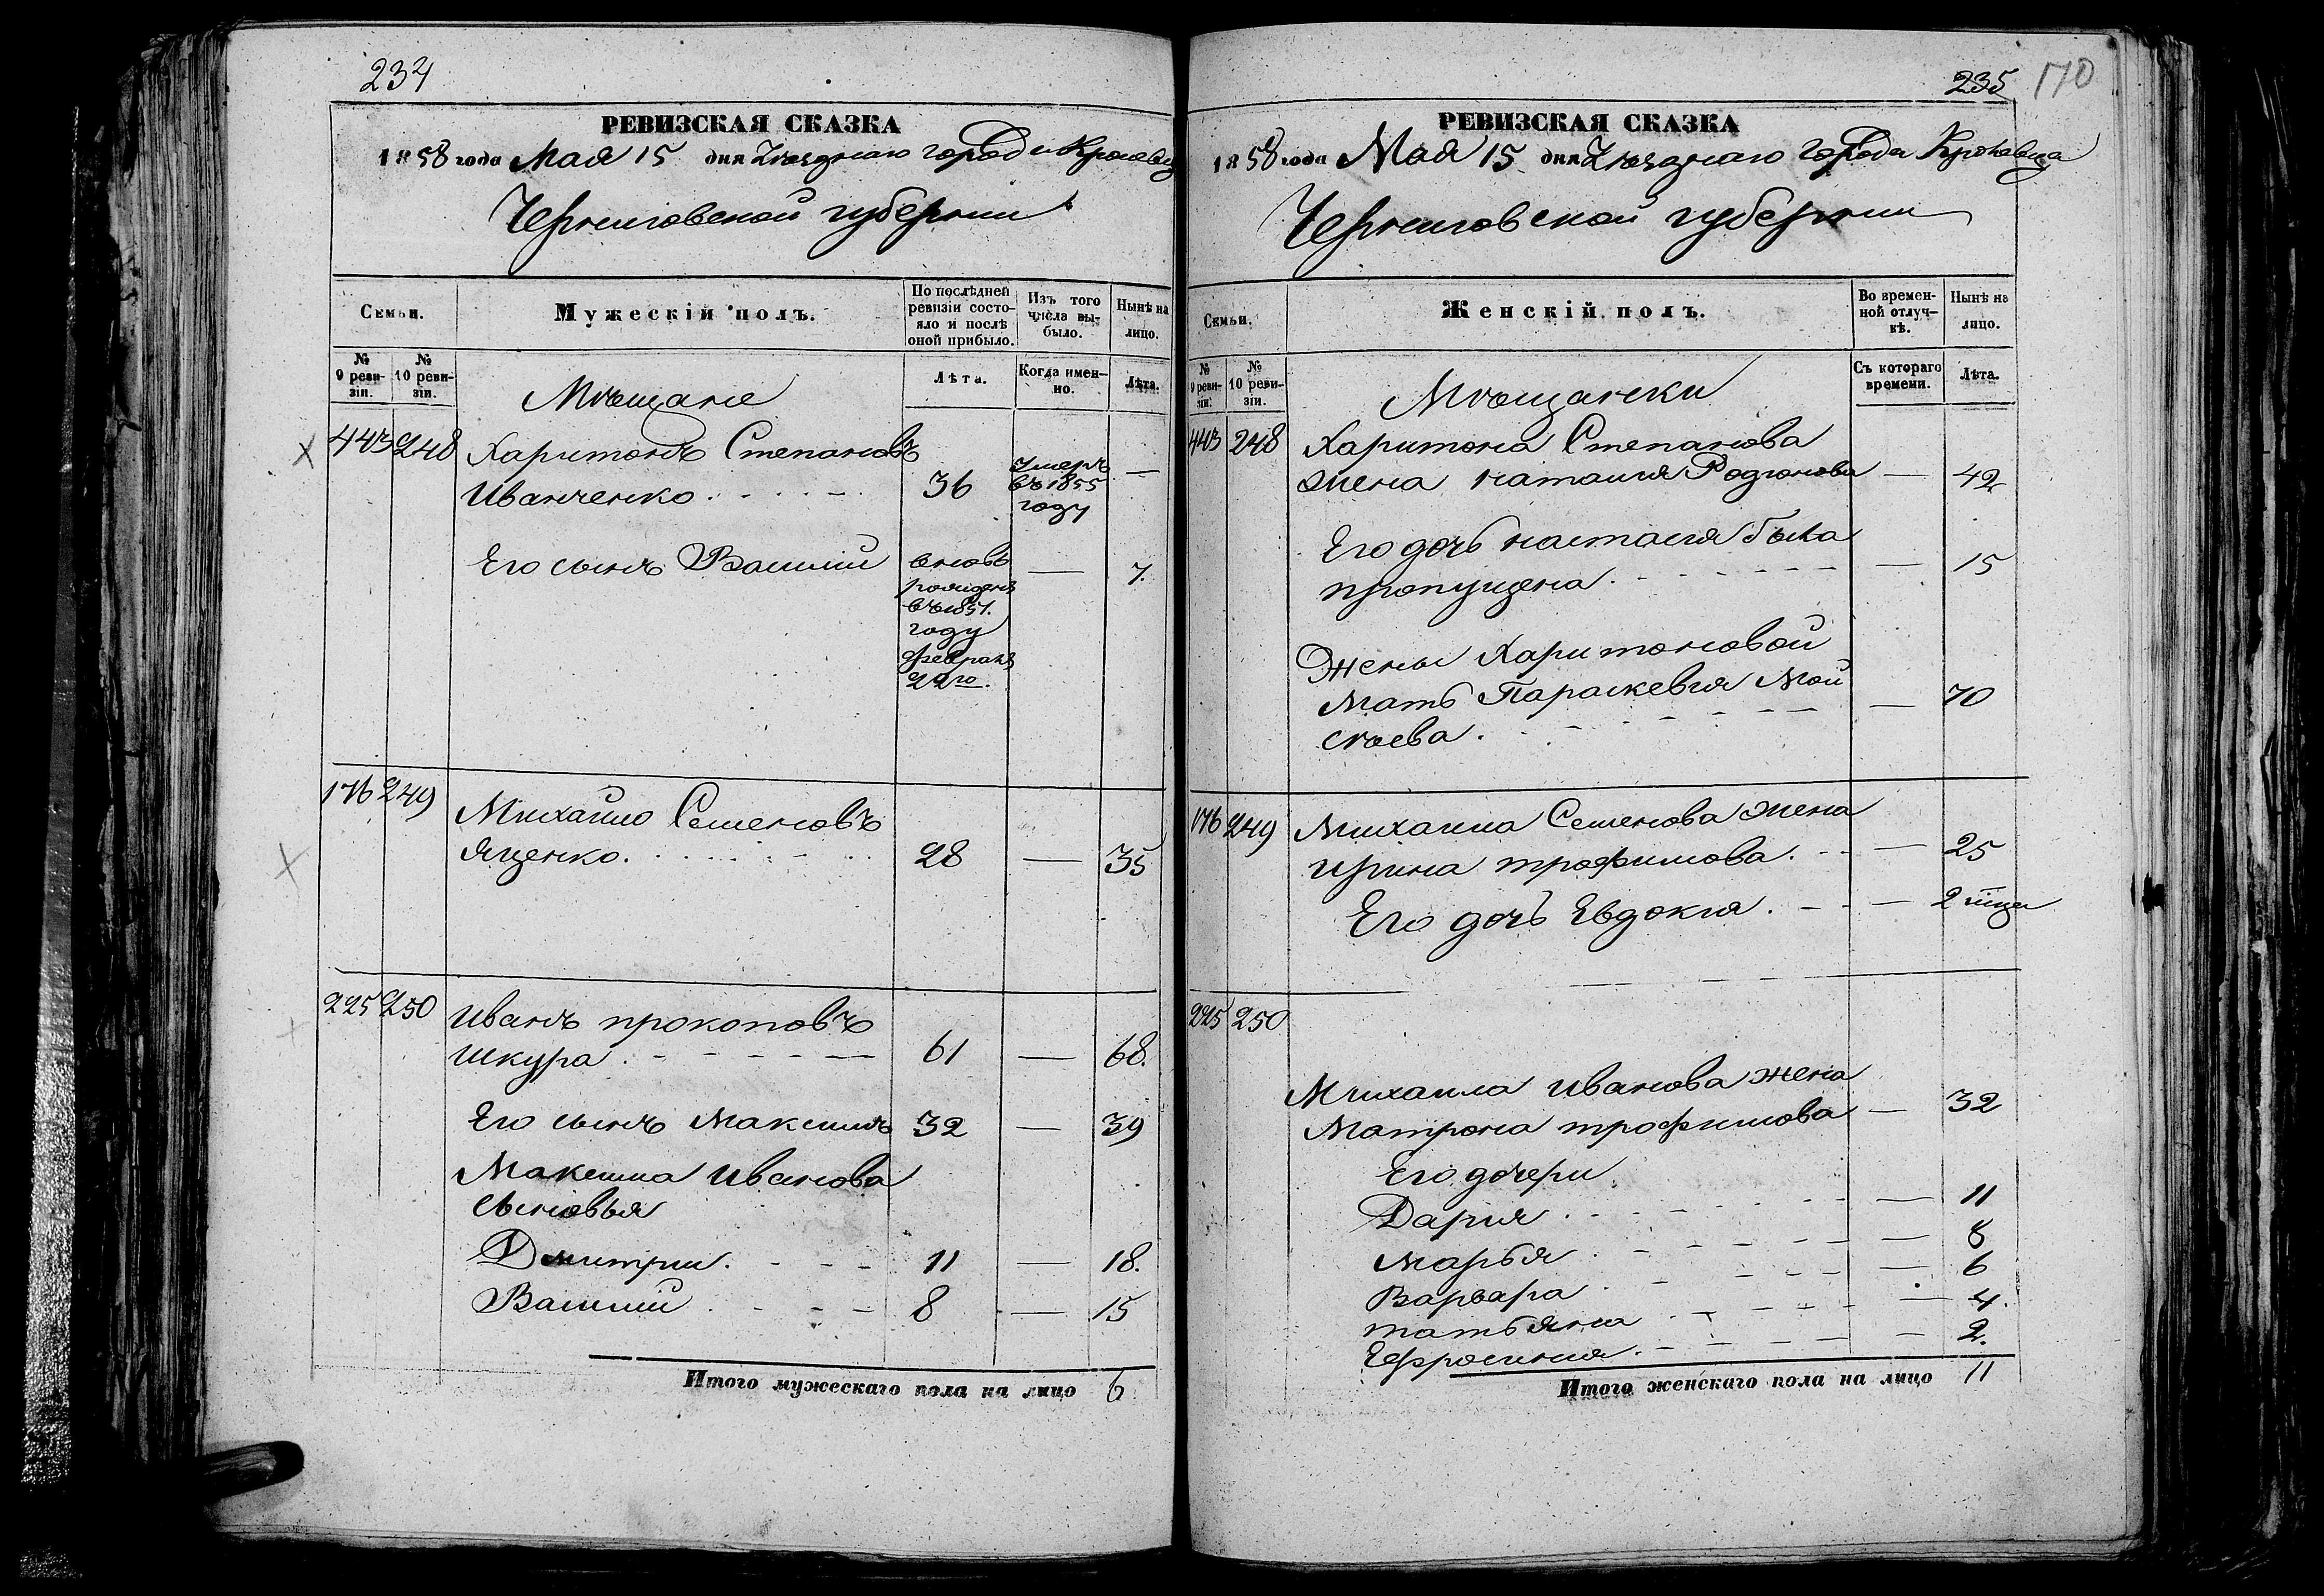 234
РЕВИЗСКАЯ СКАЗКА
1858 года Мая 15 дня Уѣзднаго города Кролевца
Черниговской губернии
Семьи.
Мужескій полъ.
По послѣдней ревизіи состояло и послѣ оной прибыло.
Изъ того числа выбыло.
Нынѣ на лицо.
№ 9 ревизіи.
№ 10 ревизіи.
Лѣта.
Когда именно.
Лѣта.
Мѣщане
443 248 Харитонъ Степановъ
Иванченко 36 умеръ въ 1855 году —
Его сынъ Василий вновь рожденъ въ 1851. году февраля 22го. — 7.
176 249 Михайло Семеновъ
Яценко 28 — 35
225 250 Иванъ Прокоповъ
Шкура 61 — 68.
Его сынъ Максимъ 32 — 39
Максима Иванова
сыновья
Дмитрии 11 — 18.
Василий 8 — 15
Итого мужескаго пола на лицо 6
235 170
РЕВИЗСКАЯ СКАЗКА
1858 года Мая 15 дня Уѣзднаго города Кролевца
Черниговской губернии
Семьи.
Женскій полъ.
Во временной отлучкѣ.
Нынѣ на лицо.
№ 9 ревизіи.
№ 10 ревизіи.
Съ котораго времени.
Лѣта.
Мѣщански
443 248 Харитона Степанова
жена Наталия Родионова — 42
Его дочь Настасия была
пропущена — 15
Жены Харитоновой
Мать Параскевия Мои
сѣева — 70
176 249 Михаила Семенова жена
Ирина Трофимова — 25
Его дочь Евдокия — 2 мѣсяца
225 250
Михаила Иванова жена
Матрона Трофимова — 32
Его дочери
Дария — 11
Марья — 8
Варвара — 6
Татьяна — 4.
Ефросиния — 2.
Итого женскаго пола на лицо 11